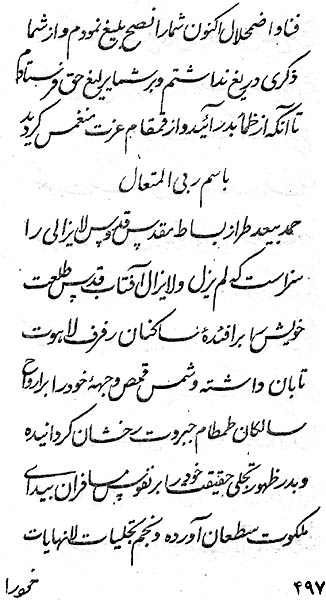 فنا و اضمحلال اکنون شما را نصح بلیغ نمودم و از شما
ذکری دریغ نداشتم و بر شما یرلیغ حق فرستادم
تا آنکه از ظمأ بدر آئید و از قمقام عزت منغمس گردید
باسم ربی المتعال
حمد بیعد طراز بساط مقدس قدوس لایزالی را
سزاست که لم یزل و لایزال آفتاب قدس طلعت
خویش را بر افئدهٔ ساکنان رفرف لاهوت
تابان داشته و شمس قمص وجههٔ خود را بر ارواح
سالکان طمطام جبروت رخشان گردانیده
و بدر ظهور تجلی حقیقت خود را بر نفوس مسافران بیدای
ملکوت سطعان آورده و نجم تجلیات لانهایات
۴۹۷ خود را